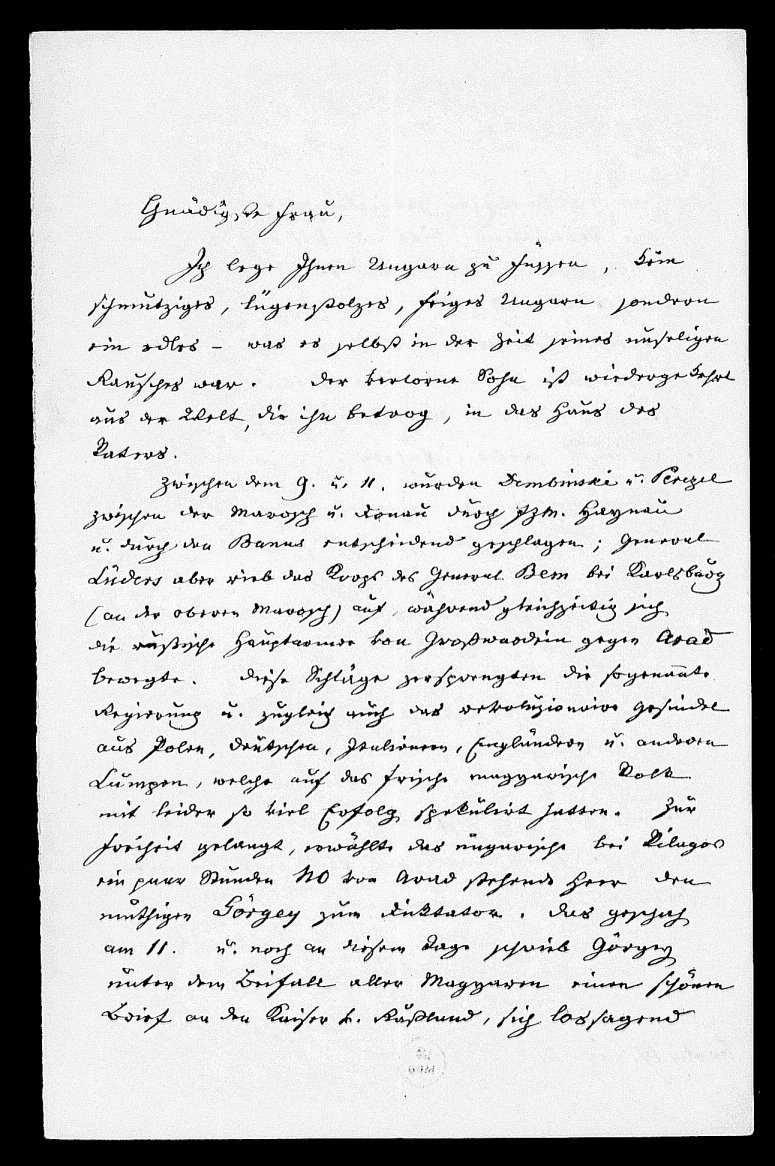 Gnädigste Frau,
Ich lege Ihnen Ungarn zu Füssen, kein
schmutziges, lügenstolzes, feiges Ungarn sondern
ein edles – was es selbst in der Zeit seines unseligen
Rausches war. Der verlorne Sohn ist wiedergekehrt
aus der Welt, die ihn betrog, in das Haus des
Vaters.
Zwischen dem 9. u. 11. wurden Dembinski u. Perczel
zwischen der Marosch u. Donau durch Fzm. Haynau
u. durch den Banus entscheidend geschlagen; General
Lüders aber rieb das Korps des General Bem bei Karlsburg
(an der oberen Marosch) auf, während gleichzeitig sich
die russische Hauptarmee von Großwardein gegen Arad
bewegte. Diese Schläge zersprengten die sogenannte
Regierung u. zugleich auch das revoluzionaire Gesindel
aus Polen, Deutschen, Italienern, Engländern u. anderen
Lumpen, welche auf das frische magyarische Volk
mit leider so viel Erfolg spekulirt hatten. Zur
Freiheit gelangt, erwählte das ungarische bei Vilagos
ein paar Stunden NO von Arad stehende Heer den
muthigen Görgey zum Diktator. Das geschah
am 11. u. noch an diesem Tage schrieb Görgey
unter dem Beifall aller Magyaren einen schönen
Brief an den Kaiser v. Rußland, sich lossagend